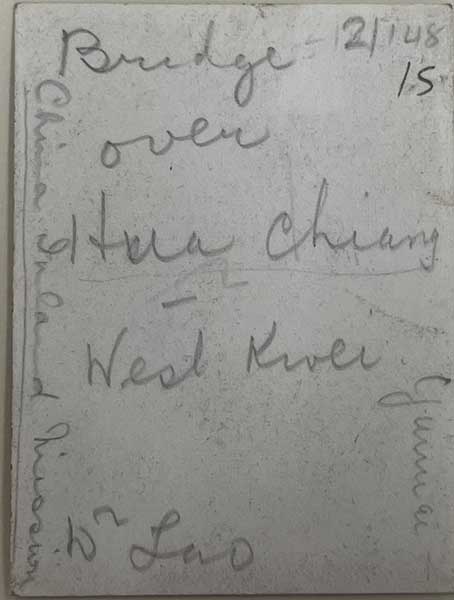 Bridge
over
Hua Chiang
West River
Lao
China Inland Mission
12/148
15